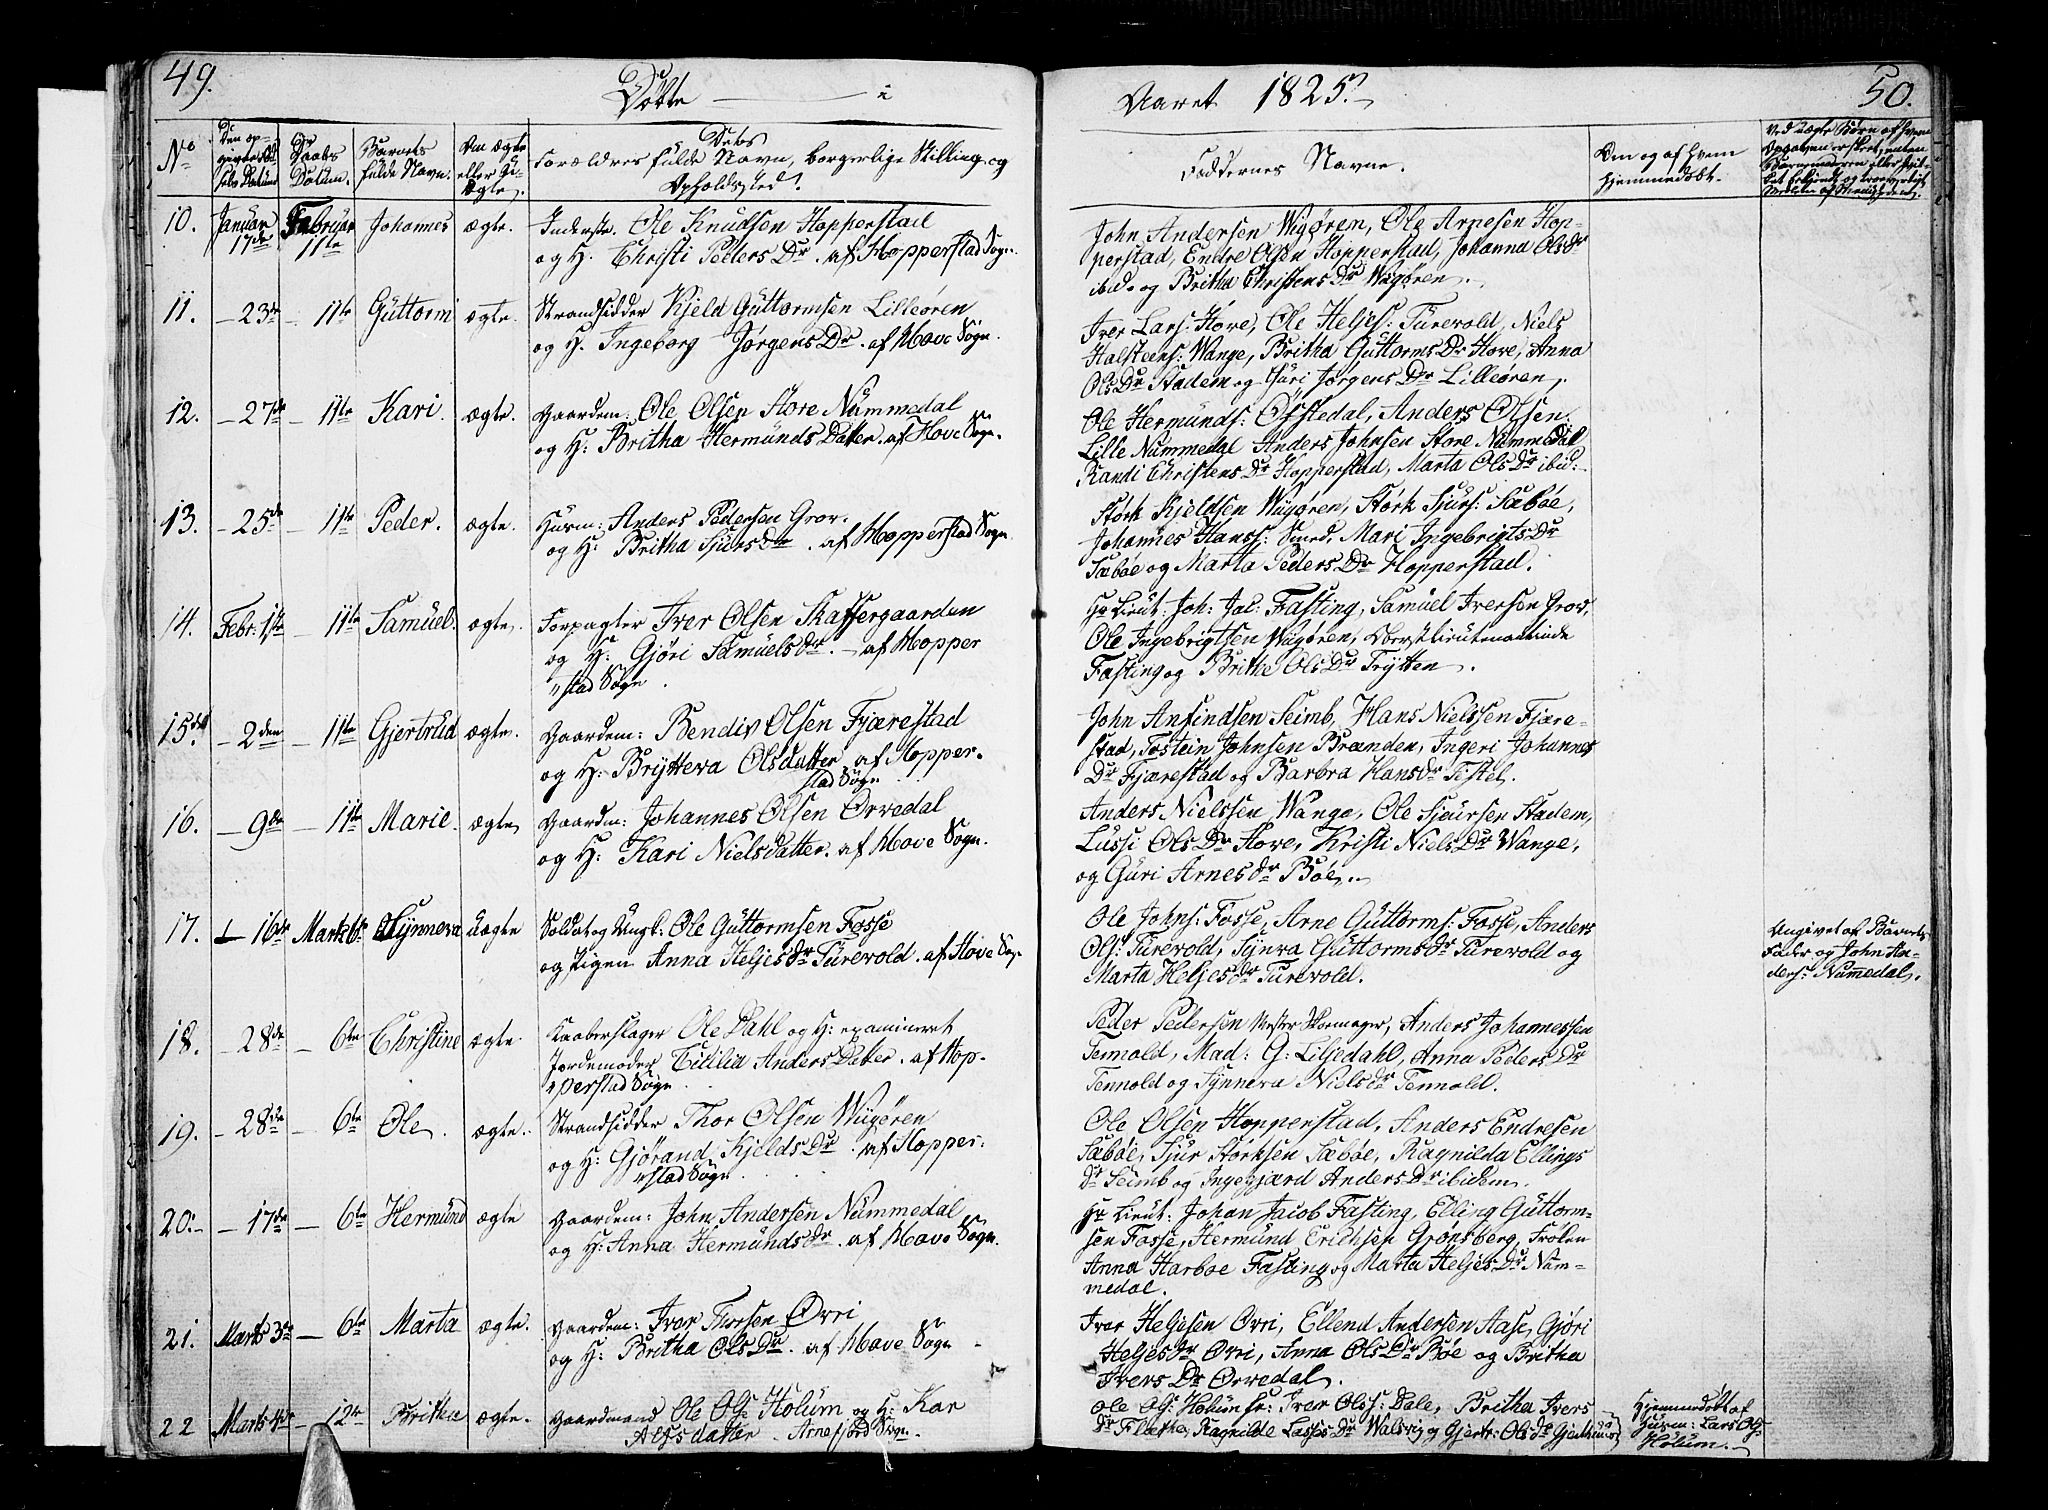 49.
Døbte i
Aaret 1825.
50.
No
Den op-
givne Fød-
sels Datum
Daabs
Datum.
Barnets
fulde Navn.
Om ægte
eller U-
ægte.
Dets
Forældres fulde Navn, borgerlige Stilling og
Opholdsted.
Faddernes Navne.
Om og af hvem
hjemmedøbt.
Ved uægte Børn af hvem
10. Januar 17de Februar 11te Johannes ægte. Inderste. Ole Knudsen Hopperstad
og H. Christi Peders Dr. af Hopperstad Sogn.
John Andersen Wigøren, Ole Arnesen Hop-
perstad, Endre Olsen Hopperstad, Johanna Olsdr
ibid. og Britha Christens Dr Wigøren.
11. — 23de — 11te Guttorm ægte. Strandsidder Kjeld Guttormsen Lilleøren
og H. Ingeborg Jørgens Dr. af Hove Sogn.
Iver Lars: Hove, Ole Heljes: Turevold, Niels
Halsteens: Wange, Britha Guttorms Dr Hove, Anna
Ols Dr Stadem og Guri Jørgens Dr Lilleøren.
12. — 27de — 11te Kari ægte. Gaardm: Ole Olsen Store Nummedal
og H: Britha Hermunds Datter. af Hove Sogn.
Ole Hermunds: Øfstedal, Anders Olsen
Lille Nummedal Anders Johnsen Store Nummedal
Randi Christens Dr Hopperstad, Marta Ols Dr ibid:
13. — 25de — 11te Peder. ægte. Huusm: Anders Pedersen Grov.
og H: Britha Sjurs Dr. af Hopperstad Sogn.
Størk Kjeldsen Wigøren, Størk Sjurs: Sæbøe,
Johannes Hanss: Smed, Mari Ingebrigts Dr
Sæbøe og Marta Peders Dr Hopperstad.
14. Febr: 1ste — 11te Samuel. ægte. Forpagter Iver Olsen Skaffergaarden
og H: Gjøri Samuels dr. — af Hopper
"stad Sogn.
Hr Lieut: Joh: Jac: Fasting, Samuel Iversen Grov,
Ole Ingebrigtsen Wigøren, Oberstlieutenantinde
Fasting og Brithe Ols Dr Trytten.
15de. — 2den — 11te Gjertrud ægte. Gaardem: Bendix Olsen Fjærestad
og H: Brytteva Olsdatter af Hopper.
stad Sogn
John Anfindsen Seimb, Hans Nielssen Fjære-
stad, Tostein Johnsen Bræmden, Ingeri Johannes
Dr Fjærestad og Barbra Hansdr Tistel.
16. — 9de — 11te Marie. ægte Gaardm: Johannes Olsen Orvedal
og H: Kari Nielsdatter. af Hove Sogn.
Anders Nielssen Wange, Ole Sjursen Stadem,
Lussi Ols Dr Hove, Kristi Niels Dr Wange,
og Guri Arnes dr Bøe.
17. — 16de Marts 6te Synneva Uægte Soldat og Ungk: Ole Guttormsen Fosse
og Pigen Anna Heljes dr Turevold. af Hove Sogn
Ole Johns: Fosse, Arne Guttorms: Fosse, Anders
Ols: Turevold, Synva Guttorms dr Turevold og
Marta Heljes dr Turevold.
Angivet af Barnets
Fader og John An-
ders: Numedal.
18. — 28de — 6te Christine ægte. Kaaberslager Ole Dahl og H: examineret
Jordemoder Cicilia Anders Datter. af Hop-
"perstad Sogn.
Peder Pedersen Mester Skomager, Anders Johannessen
Tennold, Mad: G: Liljedahl, Anna Peders Dr
Tennold og Synnera Niels dr Tennold.
19. — 28de — 6te Ole. ægte. Strandsidder Thor Olsen Wigøren
og H: Gjørand Kjelds Dr. af Hopper.
"stad Sogn.
Ole Olsen Hopperstad, Anders Endresen
Sæbøe, Sjur Størksen Sæbøe, Ragnilda Ellings
dr Seimb og Ingegjærd Anders Dr ibidem.
20. — 17de — 6te Hermund ægte Gaardem: John Andersen Nummedal
og H: Anna Hermunds dr. af Hove Sogn.
Hr Lieut: Johan Jacob Fasting, Elling Guttorm-
sen Fosse, Hermund Erichsen Grønsberg, Frøken
Anna Harboe Fasting og Marta Heljes Dr Num-
medal.
21. Marts 3de — 6te Marta ægte. Gaardem: Iver Thorsen Øvri
og H: Britha Ols Dr. af Hove Sogn
Iver Heljesen Øvri, Ellend Andersen Aase, Gjøri
Heljes dr Øvri, Anna Ols Dr Bøe og Britha
Ivers Dr Orvedal.
22 Marts 4de — 12te Britha ægte. Gaardmand Ole Ols: Holum og H: Kar
Alfsdatter. Arnefjord Sogn.
Ole Ols: Holum Iver Olss: Dale, Britha Ivers
dr Flæthe, Ragnilde Lasses Dr Walsvig og Gjertr: Ols dr
Hjemmedøbt af
Husm: Lars Ols:
Holum.